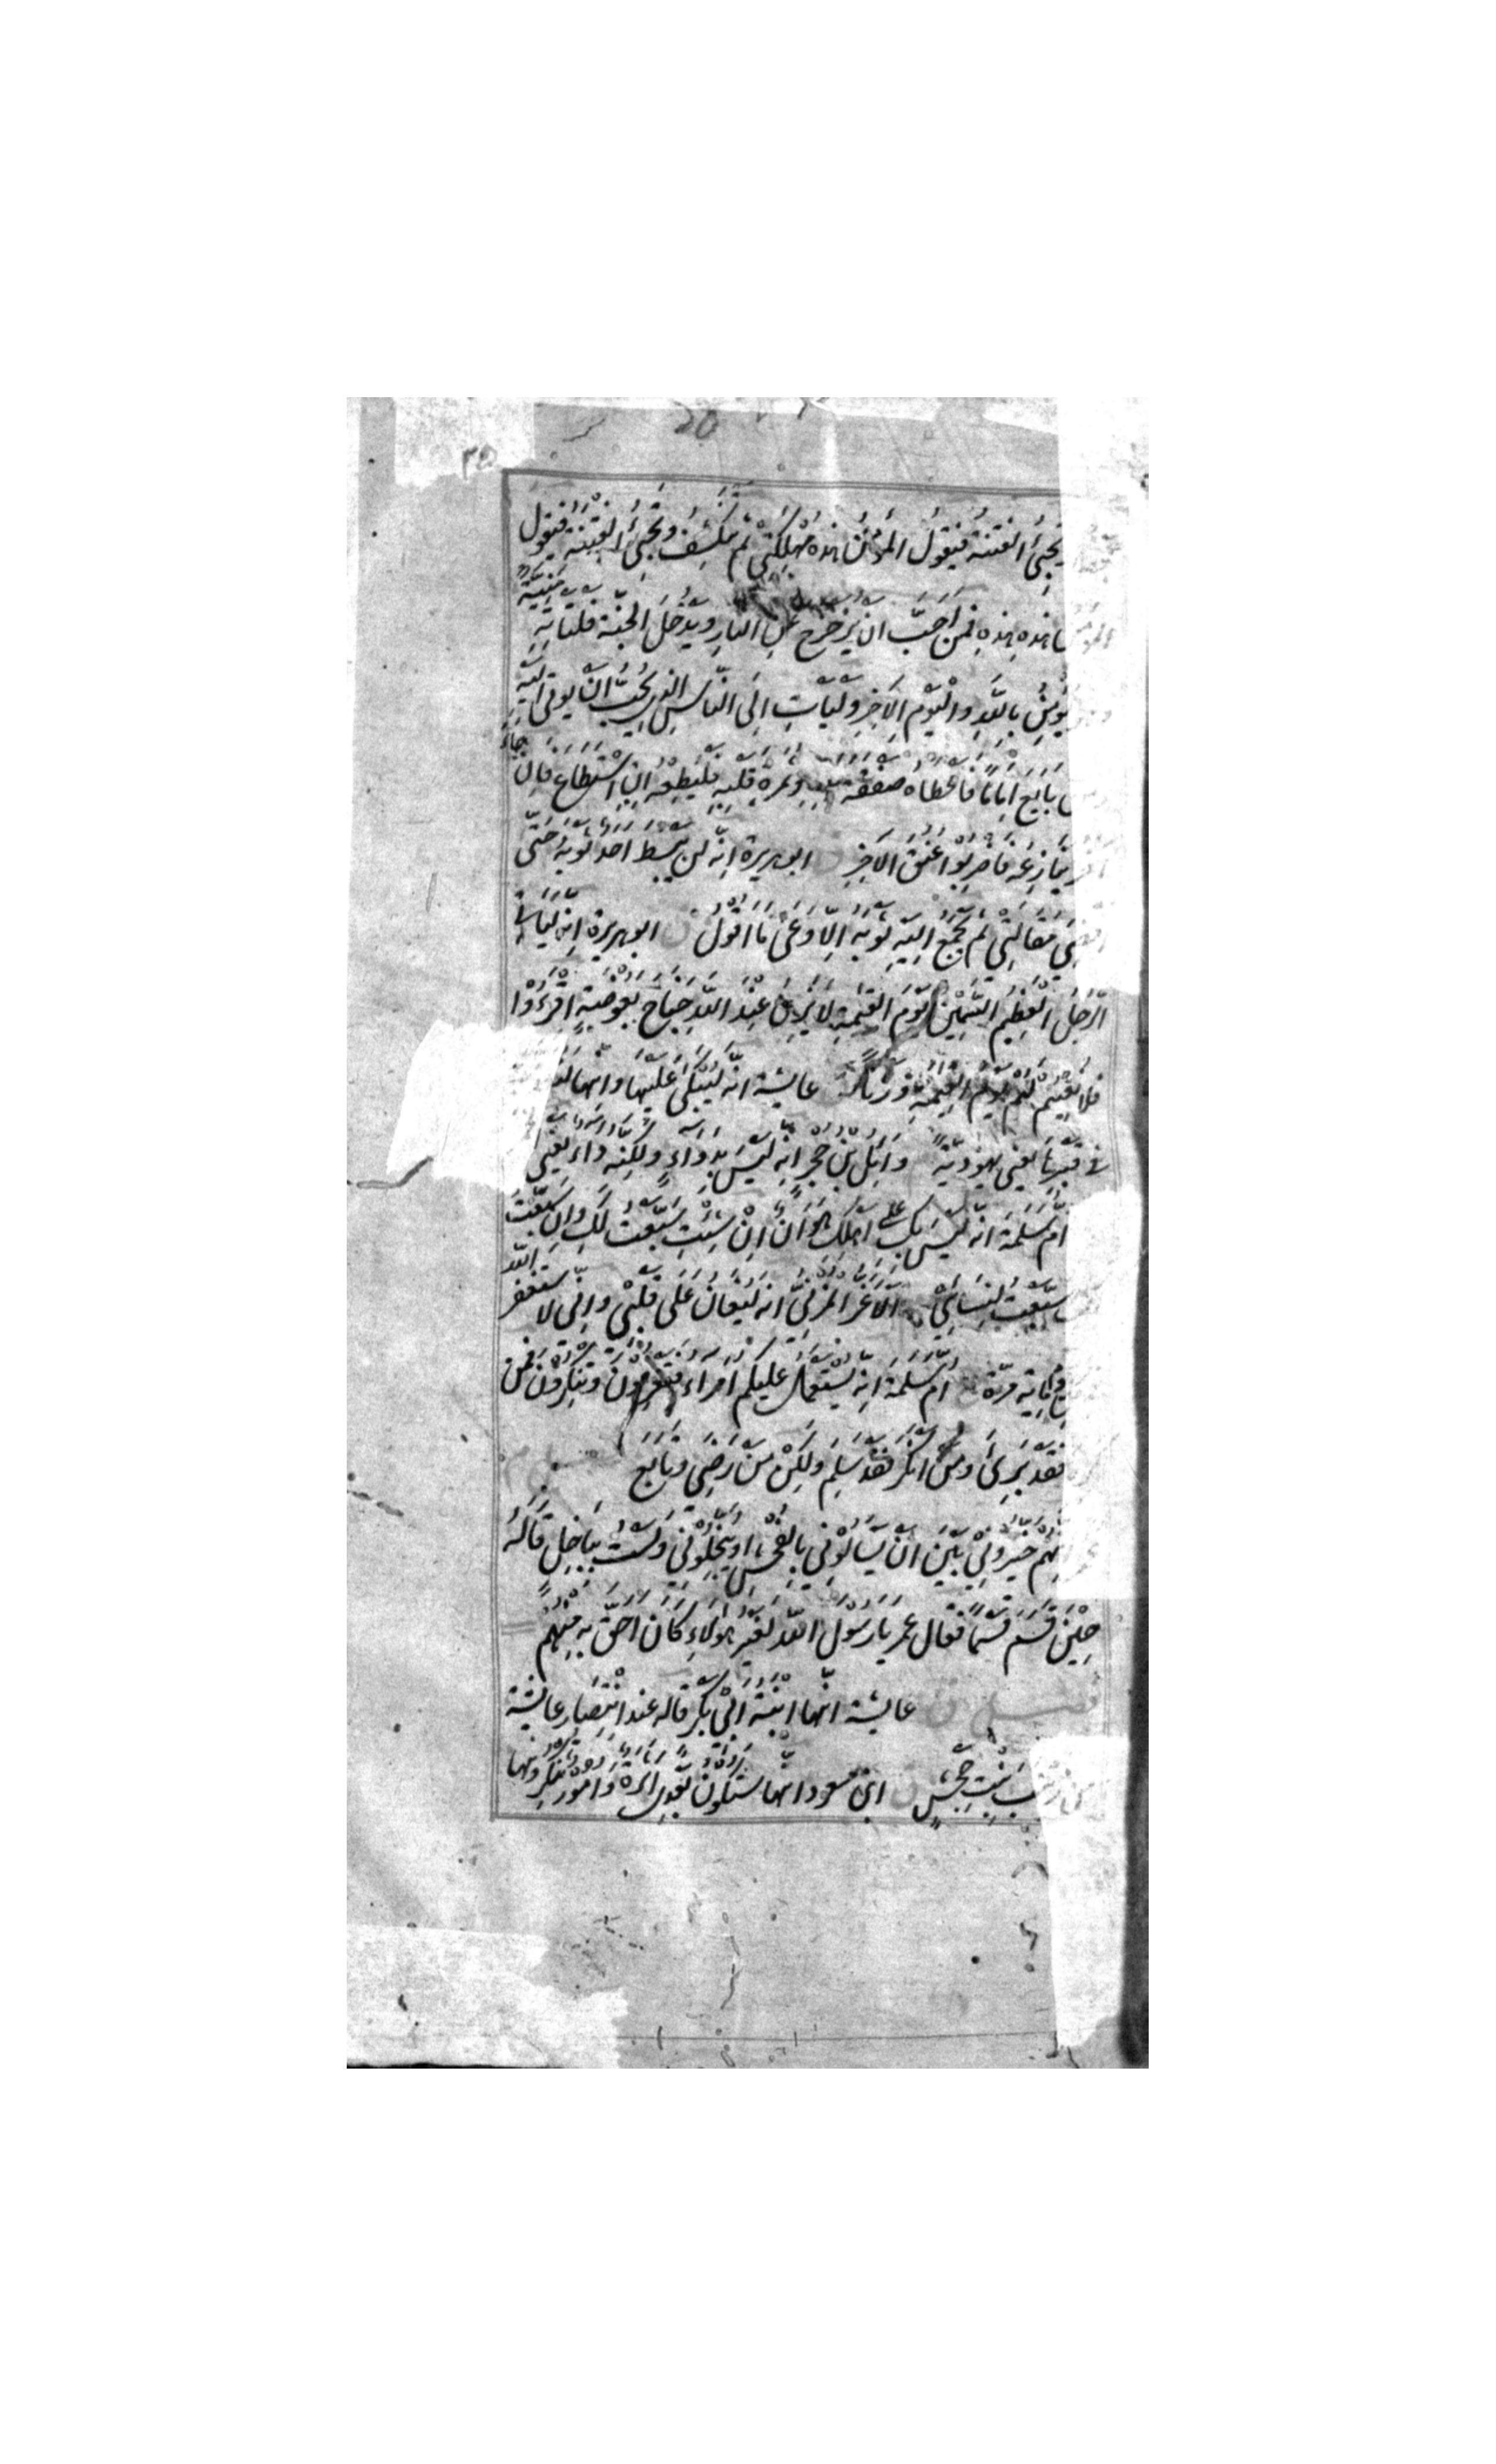 ٢٥
تجيئ الفتنة فيقول المؤمن هذه مهلكتي ثم تنكشف وتجيئ الفتنة فيقول
هذه هذه فمن احب ان يزحزح عن النار ويدخل الجنة فلتاته منيته
يؤمن بالله واليوم الاخر وليات الى الناس الذي يحب ان يوتى اليه
بايع اماما فاعطاه صفقة وثمرة قلبه فليطعه ان استطاع فان جاء
ينازعه فاضربوا عنق الاخر ابو هريرة انه لن يبسط احد ثوبه حتى
اقضي مقالتي ثم يجمع اليه ثوبه الا وعى ما اقول ق ابو هريرة انه لياتي
الرجل العظيم السمين يوم القيمة لا يزن عند الله جناح بعوضة اقرءوا
فلا نقيم لهم يوم القيمة وزنا عايشة انه ليبكى عليها وانها
في قبرها يعني يهودية وائل بن حجر انه ليس بدواء ولكنه داء يعني
ام سلمة انه ليس بك على اهلك هوان ان شئت سبعت لك وان سبعت
سبعت لنسائي الاغر المزني انه ليغان على قلبي واني لاستغفر الله
ماية مرة ام سلمة انه يستعمل عليكم امراء فتعرفون وتنكرون فمن
فقد برئ ومن انكر فقد سلم ولكن من رضي وتابع
انهم خيروني بين ان يسالوني بالفحش او يبخلوني ولست بباخل قاله
حين قسم قسما فقال عمر يا رسول الله لغير هؤلاء كان احق به منهم
فصل ق عايشة انها ابنة ابي بكر قاله عند انتصار عايشة
بنت جحش ق ابن مسعود انها ستكون بعدي اثرة وامور تنكرونها